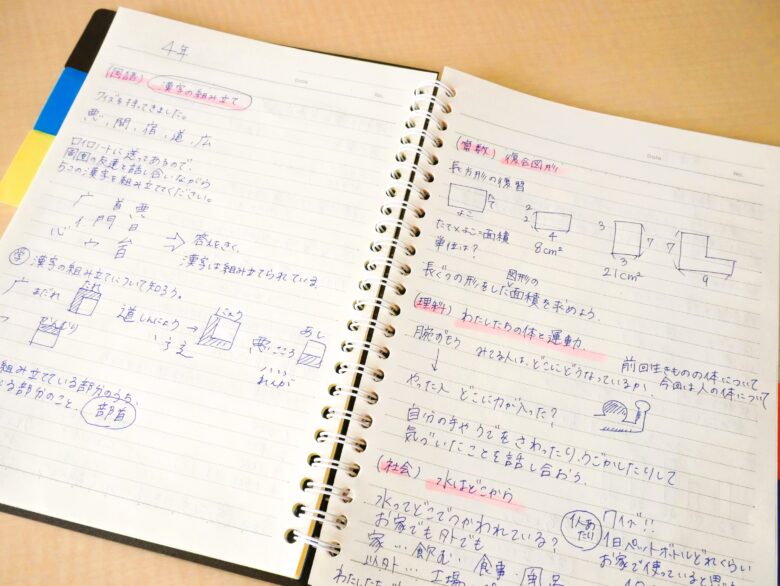 4年
(国語) 漢字の組み立て
クイズを持ってきました。
悪、間、宿、道、広
ロイロノートに送ってあるので、
周囲の友達と話し合いながら
5つの漢字を組み立ててください。
广 首 悪
イ 門 日
心 宀
⇒ 答えをきく。
漢字は組み立てられている
学 漢字の組み立てについて知ろう。
广 まだれ たれ
道 しんにょう → にょう
悪 こころ あし
かんむり
灬 れんが
組み立てている部分のうち、
る部分のこと。部首
Date No.
(算数) 複合図形
長方形の復習
たて
よこ
2 2 4 8cm²
3 3 7 21cm²
7 9
たて×よこ=面積
単位は?
長ぐつの形をした図形の面積を求めよう。
(理科) わたしたちの体と運動
腕ずもう みてる人は、どこにどうなっているか、
前回生きものの体について
今回は人の体について
↓
やった人 どこに力が入った?
自分の手やうでをさわったり、うごかしたりして
気づいたことを話し合おう。
(社会) 水はどこから
水ってどこでつかわれている?
お家でも外でも
家…飲む、食事、風呂
以外…工場
1人あたり
クイズ!!
1日ペットボトルどれくらい
お家で使っていると思